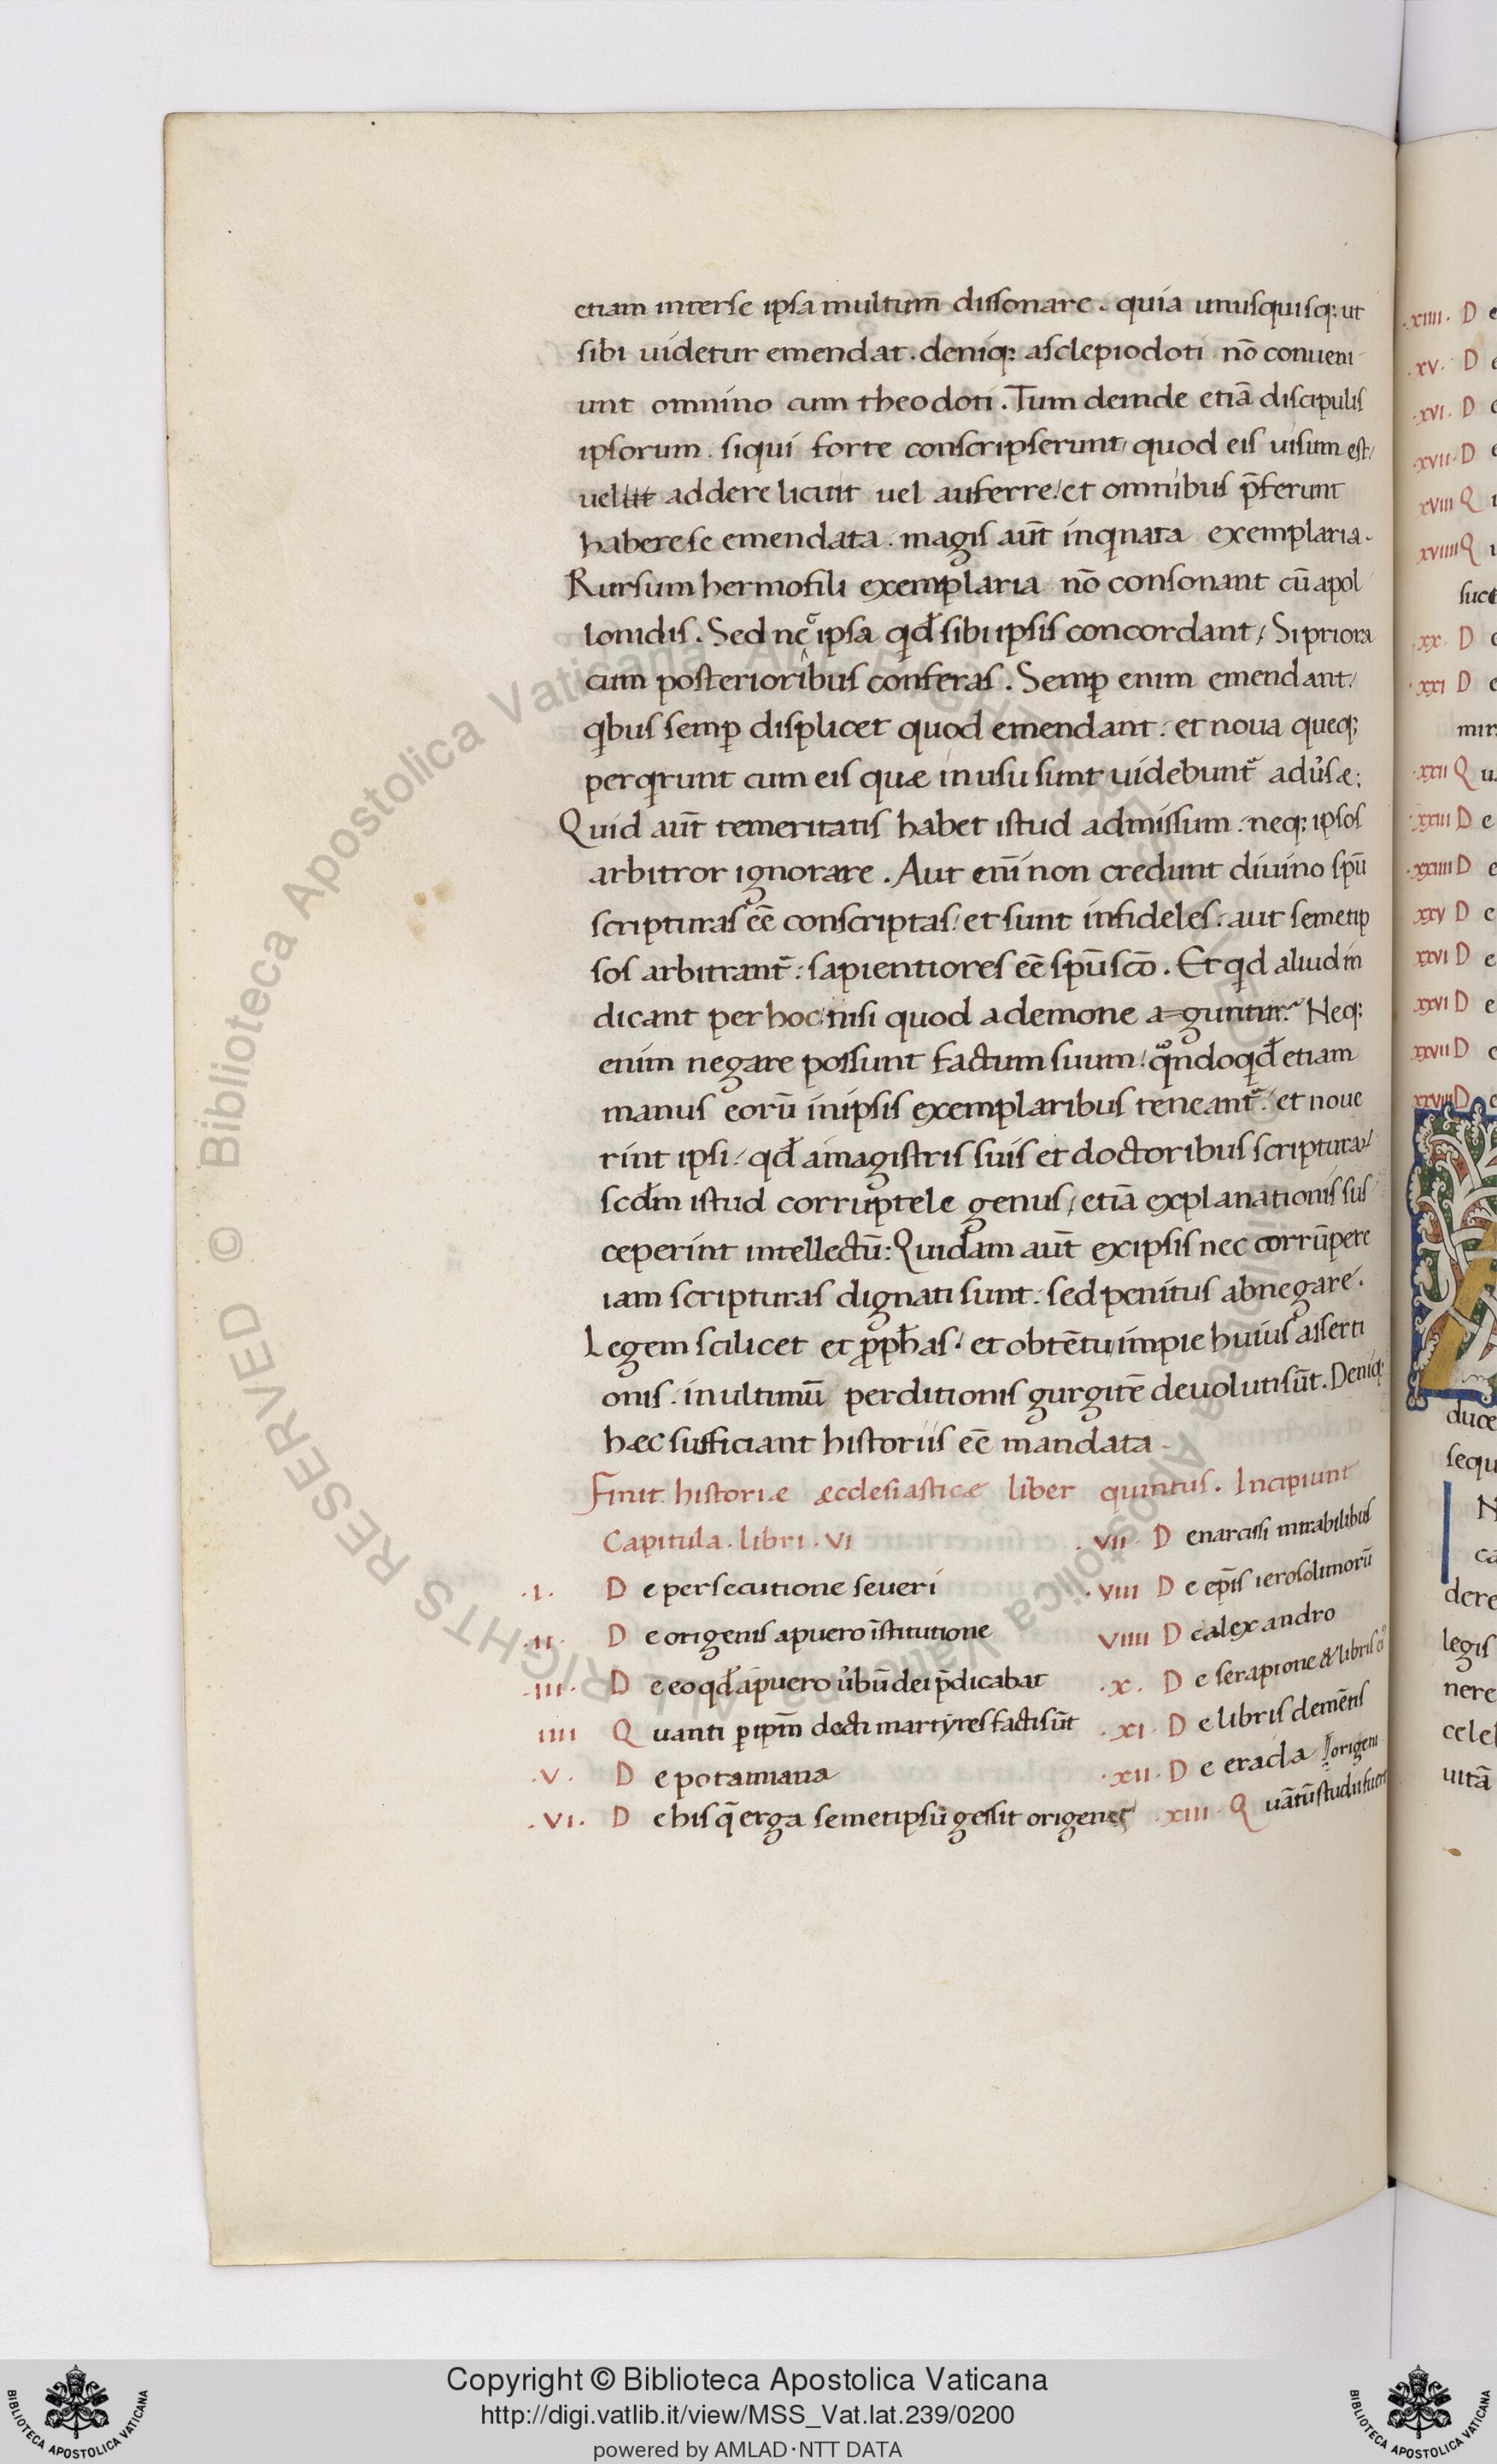 etiam interse ipsa multum̄ dissonare. quia unusquisq; ut
sibi uidetur emendat. deniq; asclepiodoti nō conueni
unt omnino cum theodoti. Tum deinde etiā discipulis
ipsorum. siqui forte conscripserunt, quod eis uisum est,
uel addere licuit uel auferre, et omnibus p̄ferunt
haberese emendata. magis aūt inqnata exemplaria.
Rursum hermofili exemplaria nō consonant cū apol
lonidis. Sed nec ipsa qđ sibi ipsis concordant, Si priora
cum posterioribus conferas. Semp enim emendant,
qbus semp displicet quod emendant: et noua queq;
perqrunt cum eis quæ in usu sunt uidebunt᷑ adu᷑sæ;
Quid aūt temeritatis habet istud admissum: neq; ipsos
arbitror ignorare. Aut eni̅ non credunt diuino spū
scripturas eē conscriptas, et sunt infideles: aut semetip
sos arbitrant᷑: sapientiores eē spū scō. Et qd aliud in
dicant per hoc, nisi quod ademone a=guntur. Neq;
enim negare possunt factum suum, qn̊doqđ etiam
manus eorū in ipsis exemplaribus teneant᷑, et noue
rint ipsi, qđ amagistris suis et doctoribus scripturaꝝ
scđm istud corruptele genus, etiā explanationis sus
ceperint intellectū: Quidam aūt ex ipsis nec corrūpere
iam scripturas dignati sunt. sed penitus abnegare.
Legem scilicet et pph̄as, et obtētu impie huius asserti
onis. in ultimū perditionis gurgitē deuoluti sūt. Deniq;
hæc sufficiant historiis eē mandata.
Finit historiæ æcclesiasticæ liber quintus. Incipiunt
Capitula. libri. VI
.I. De persecutione seueri
.II. De origenis apuero īstitutione
.III. De eo qđ apuero u᷑bū dei p̄dicabat
IIII Quanti p ipm̄ docti martyres facti sūt
.V. De potamiana
.VI. De his q̄ erga semetipsū gessit origenes
.VII. De narcissi mirabilibus
.VIII De ep̄is ierosolimorū
VIIII De alexandro
.X. De serapione & libris ei᷒
.XI. De libris clemētis
.XII. De eracla
origeni
.XIII. Quātū studii fuerit
.XIIII. D e
.XV. D
.XVI. D
.XVII. D
XVIII Q
XVIIII Q
succ
XX. D
.XXI D e
mir
.XXII Q u
.XXIII D e
.XXIIII D e
XXV D e
XXVI D e
XXVI D e
XXVII D e
XXVIII D e
duce
sequ
N
ca
dere
legis
nere
celeb
uitā
Copyright © Biblioteca Apostolica Vaticana
http://digi.vatlib.it/view/MSS_Vat.lat.239/0200
powered by AMLAD·NTT DATA
BIBLIOTECA APOSTOLICA VATICANA
BIBLIOTECA APOSTOLICA VATICANA